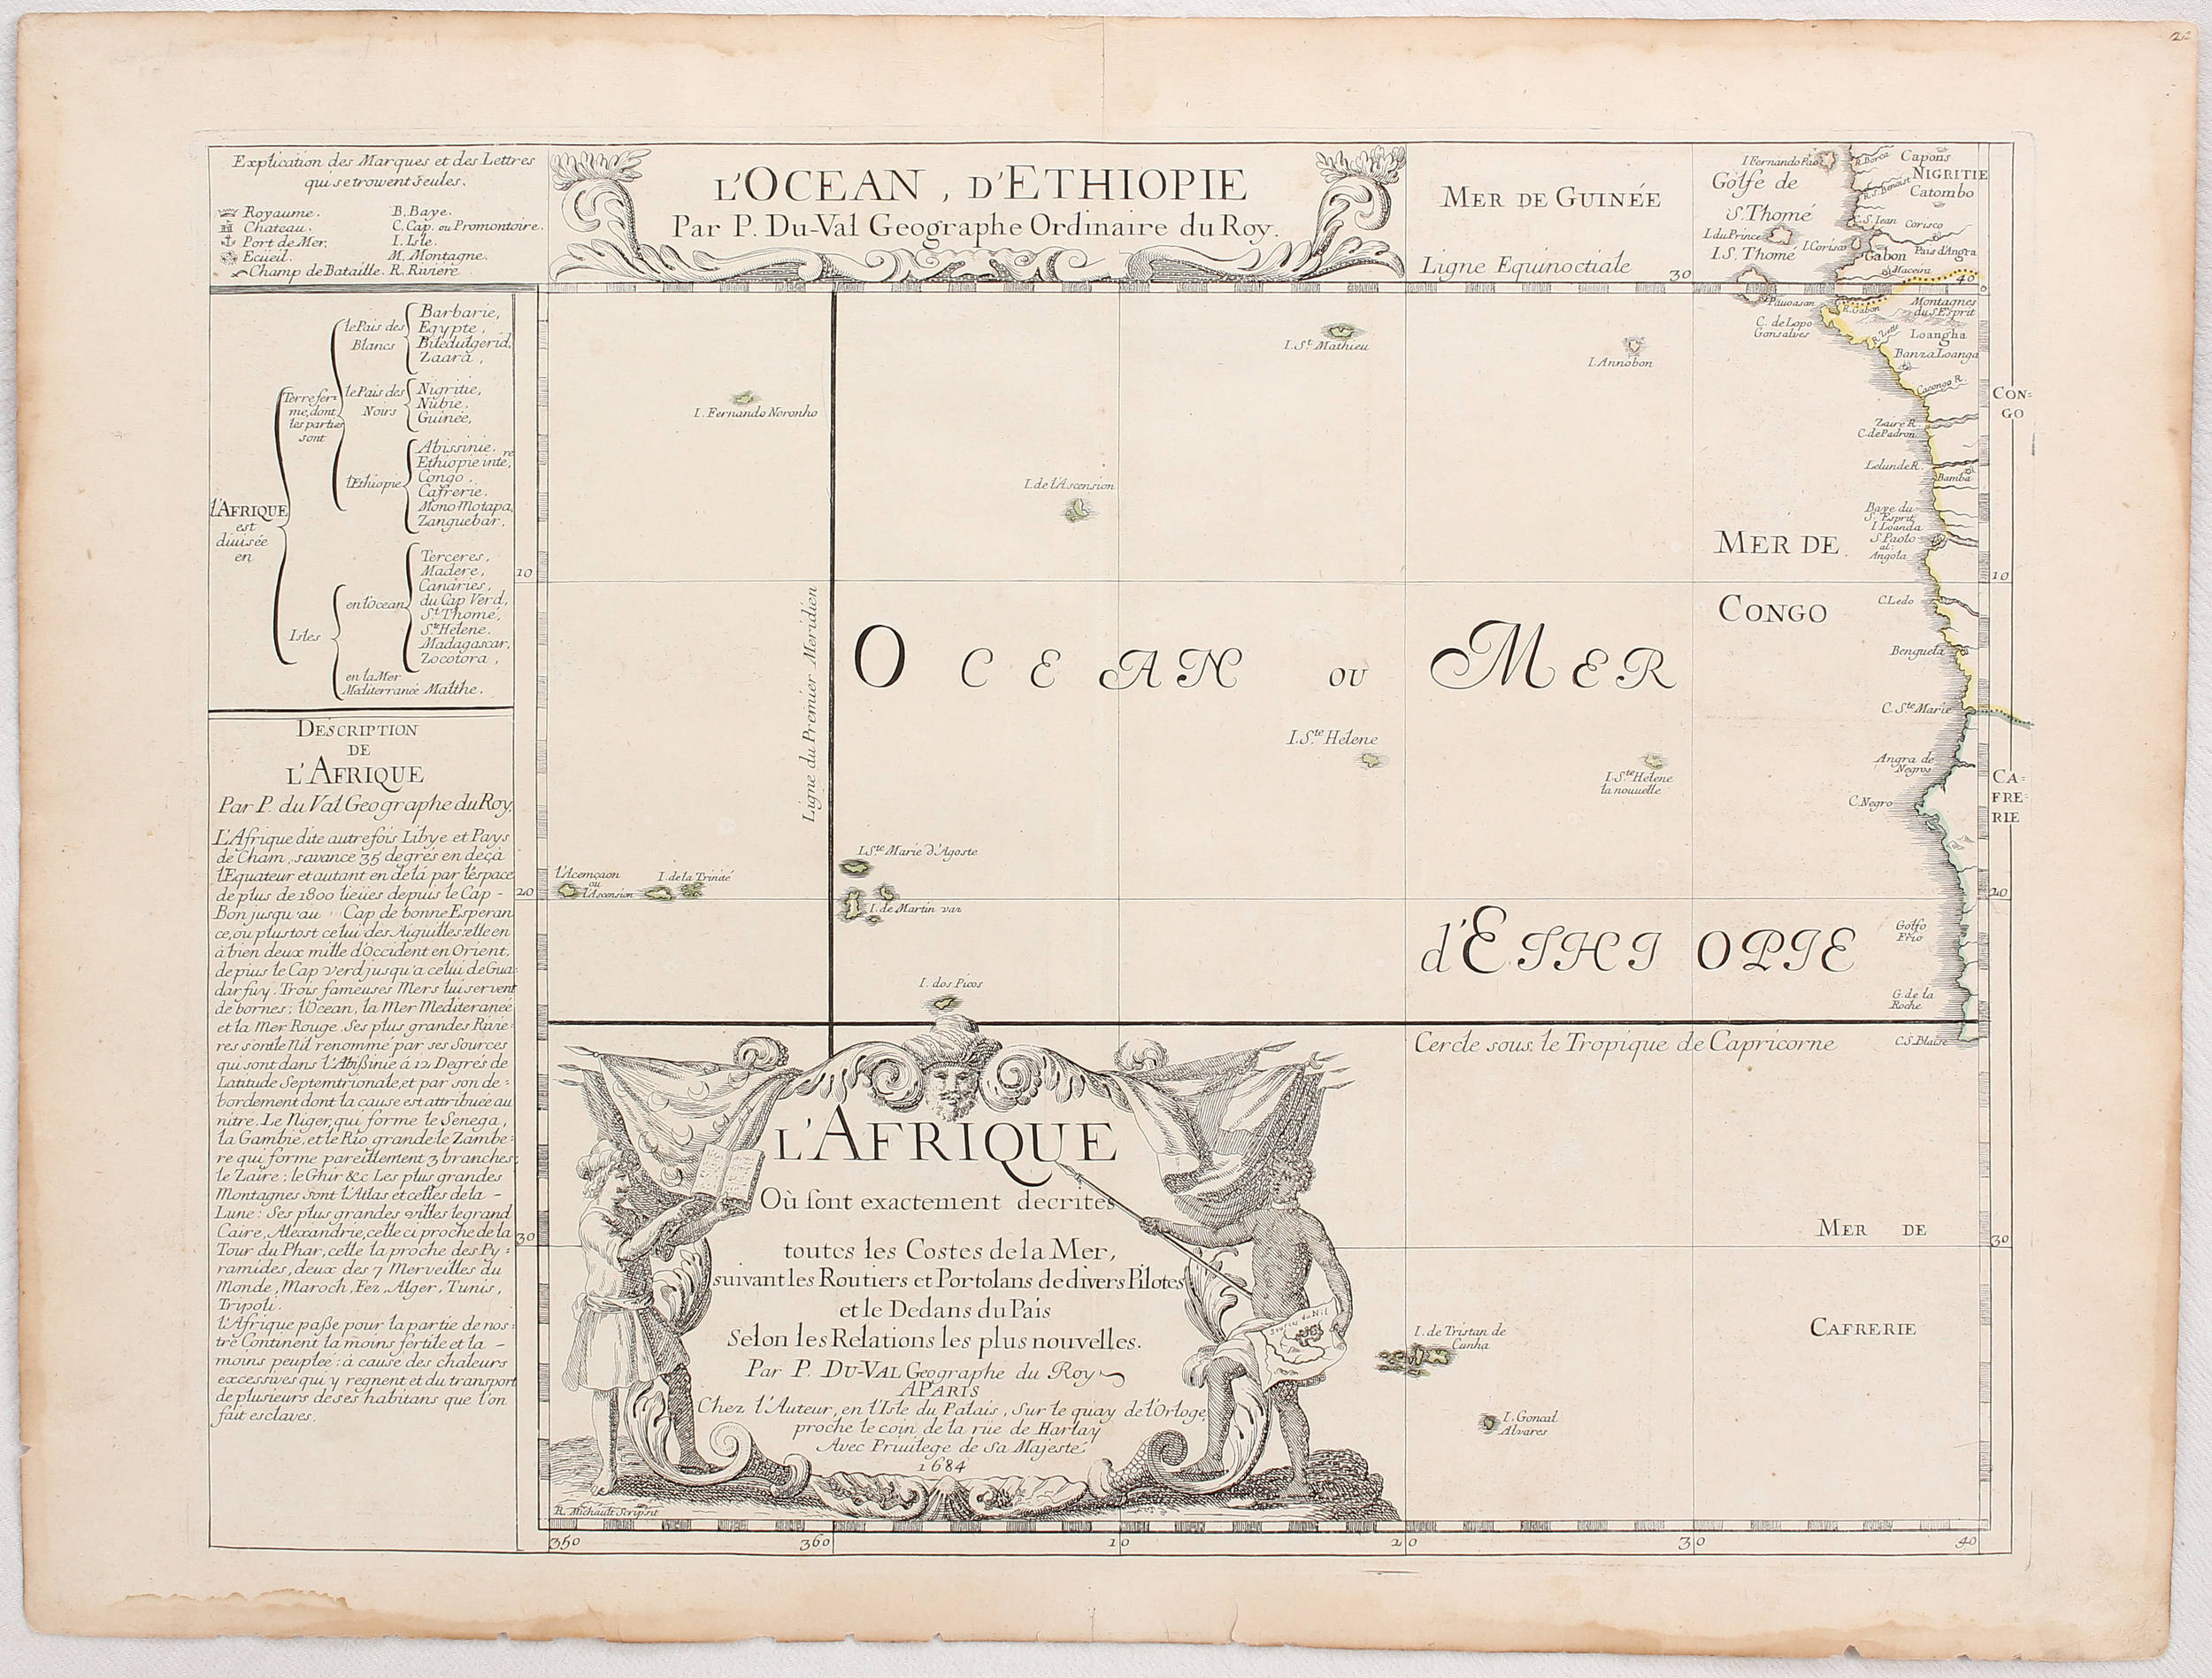 22
Explication des Marques et des Lettres
qui se trouvent Seules.
Royaume.
Chateau.
Port de Mer.
Ecüeil.
Champ de Bataille.
B. Baye.
C. Cap. ou Promontoire.
I. Isle.
M. Montagne.
R. Riviere
L'OCEAN, D'ETHIOPIE
Par P. Du-Val Geographe Ordinaire du Roy.
MER DE GUINÉE
Ligne Equinoctiale
30
I Fernando Pao
Golfe de
S. Thomé
I. du Prince
I.S. Thomé
I. Corisco
R. Borca
Capons
NIGRITIE
R.S. Benoist
Catombo
C.S. Iean
Corisco
Gabon
Pais d'Angra
Maceira
40
0
l'AFRIQUE
est
diuisée
en
Terre fer-
me, dont
les parties
sont
le Païs des
Blancs
Barbarie,
Egypte,
Biledulgerid,
Zaara,
le Païs des
Noirs
Nigritie,
Nubie,
Guinée,
l'Ethiopie
Abissinie.
Ethiopie inte,re
Congo.
Cafrerie.
Mono Motapa,
Zanguebar,
Isles
en l'Ocean
Terceres,
Madere,
Canaries,
du Cap Verd,
St. Thomé,
Ste Helene.
Madagascar,
Zocotora,
en la Mer
Mediterranée Malthe.
DESCRIPTION
DE
L'AFRIQUE
Par P. du Val Geographe du Roy.
L'Afrique dite autrefois Libye et Pays
de Cham, savance 35 degrés en deçà
l'Equateur et autant en delá par l'espace
de plus de 1800 lieües depuis le Cap -
Bon jusqu'au Cap de bonne Esperan
ce, ou plustost celui des Aiguilles: elle en
à bien deux mille d'Occident en Orient,
depius le Cap verd jusqu'a celui de Gua
darfuy. Trois fameuses Mers lui servent
de bornes; l'Ocean, la Mer Mediteraneé
et la Mer Rouge. Ses plus grandes Rivie:
res sont le Nil renommé par ses Sources
qui sont dans l'Abißinie á 12 Degrés de
Latitude Septemtrionale, et par son de:
bordement dont la cause est attribuée au
nitre, Le Niger, qui forme le Senega,
la Gambie, et le Rio grande: le Zambe:
re qui forme pareillement 3 branches;
le Zaïre; le Ghir &c Les plus grandes
Montagnes sont l'Atlas et celles de la -
Lune: Ses plus grandes villes le grand
Caire, Alexandrie, celle ci proche de la
Tour du Phar, celle la proche des Py:
ramides, deux des 7 Merveilles du
Monde, Maroch, Fez, Alger, Tunis,
Tripoli.
l'Afrique paße pour la partie de nos:
tre Continent la moins fertile et la -
moins peuplée: á cause des chaleurs
excessives qui y regnent et du transport
de plusieurs de ses habitans que l'on
fait esclaves.
10
20
30
I. Fernando Noronho
I. de l'Ascension
I. St. Mathieu
I. Annobon
Pauoasan
C. de Lopo
Gonsalves
R. Gabon
Montagnes
du S. Esprit
Loangha
Banza Loanga
Cacongo R.
CON:
GO
Zaire R.
C. de Padron
Lelunde R.
Bamba
Baye du
S. Esprit
I Loanda
S. Paolo
al:
Angola
10
MER DE
CONGO
C. Ledo
Benguela
C. Ste Marie
Angra de
Negros
C. Negro
CA:
FRE:
RIE
Ligne du Premier Meridien
OCEAN OU MER
d'ETHIOPIE
I. Ste Hélene
I. Ste Hélene
la nouuelle
I. Ste Marie d'Agoste
l'Acemçaon
ou
l'Ascension
I. de la Trinité
I. de Martin vaz
I. dos Picos
20
Golfo
Frio
G. de la
Roche
C. S. Blaise
Cercle sous le Tropique de Capricorne
L'AFRIQUE
Où sont exactement decrites
toutes les Costes de la Mer,
suivant les Routiers et Portolans de divers Pilotes
et le Dedans du Païs
Selon les Relations les plus nouvelles.
Par P. DU-VAL Geographe du Roy
A PARIS
Chez l'Auteur, en l'Isle du Palais, Sur le quay de l'Orloge,
proche le coin de la rüe de Harlay
Avec Priuilege de Sa Majesté
1684
Sources du Nil
R. Michault Scripsit
MER DE
CAFRERIE
30
I. de Tristan de
Cunha
I. Goncal
Alvares
350
360
10
20
30
40